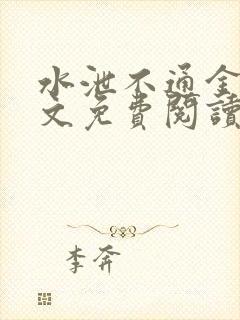 水泄不通全
文免費閱讀
李奔